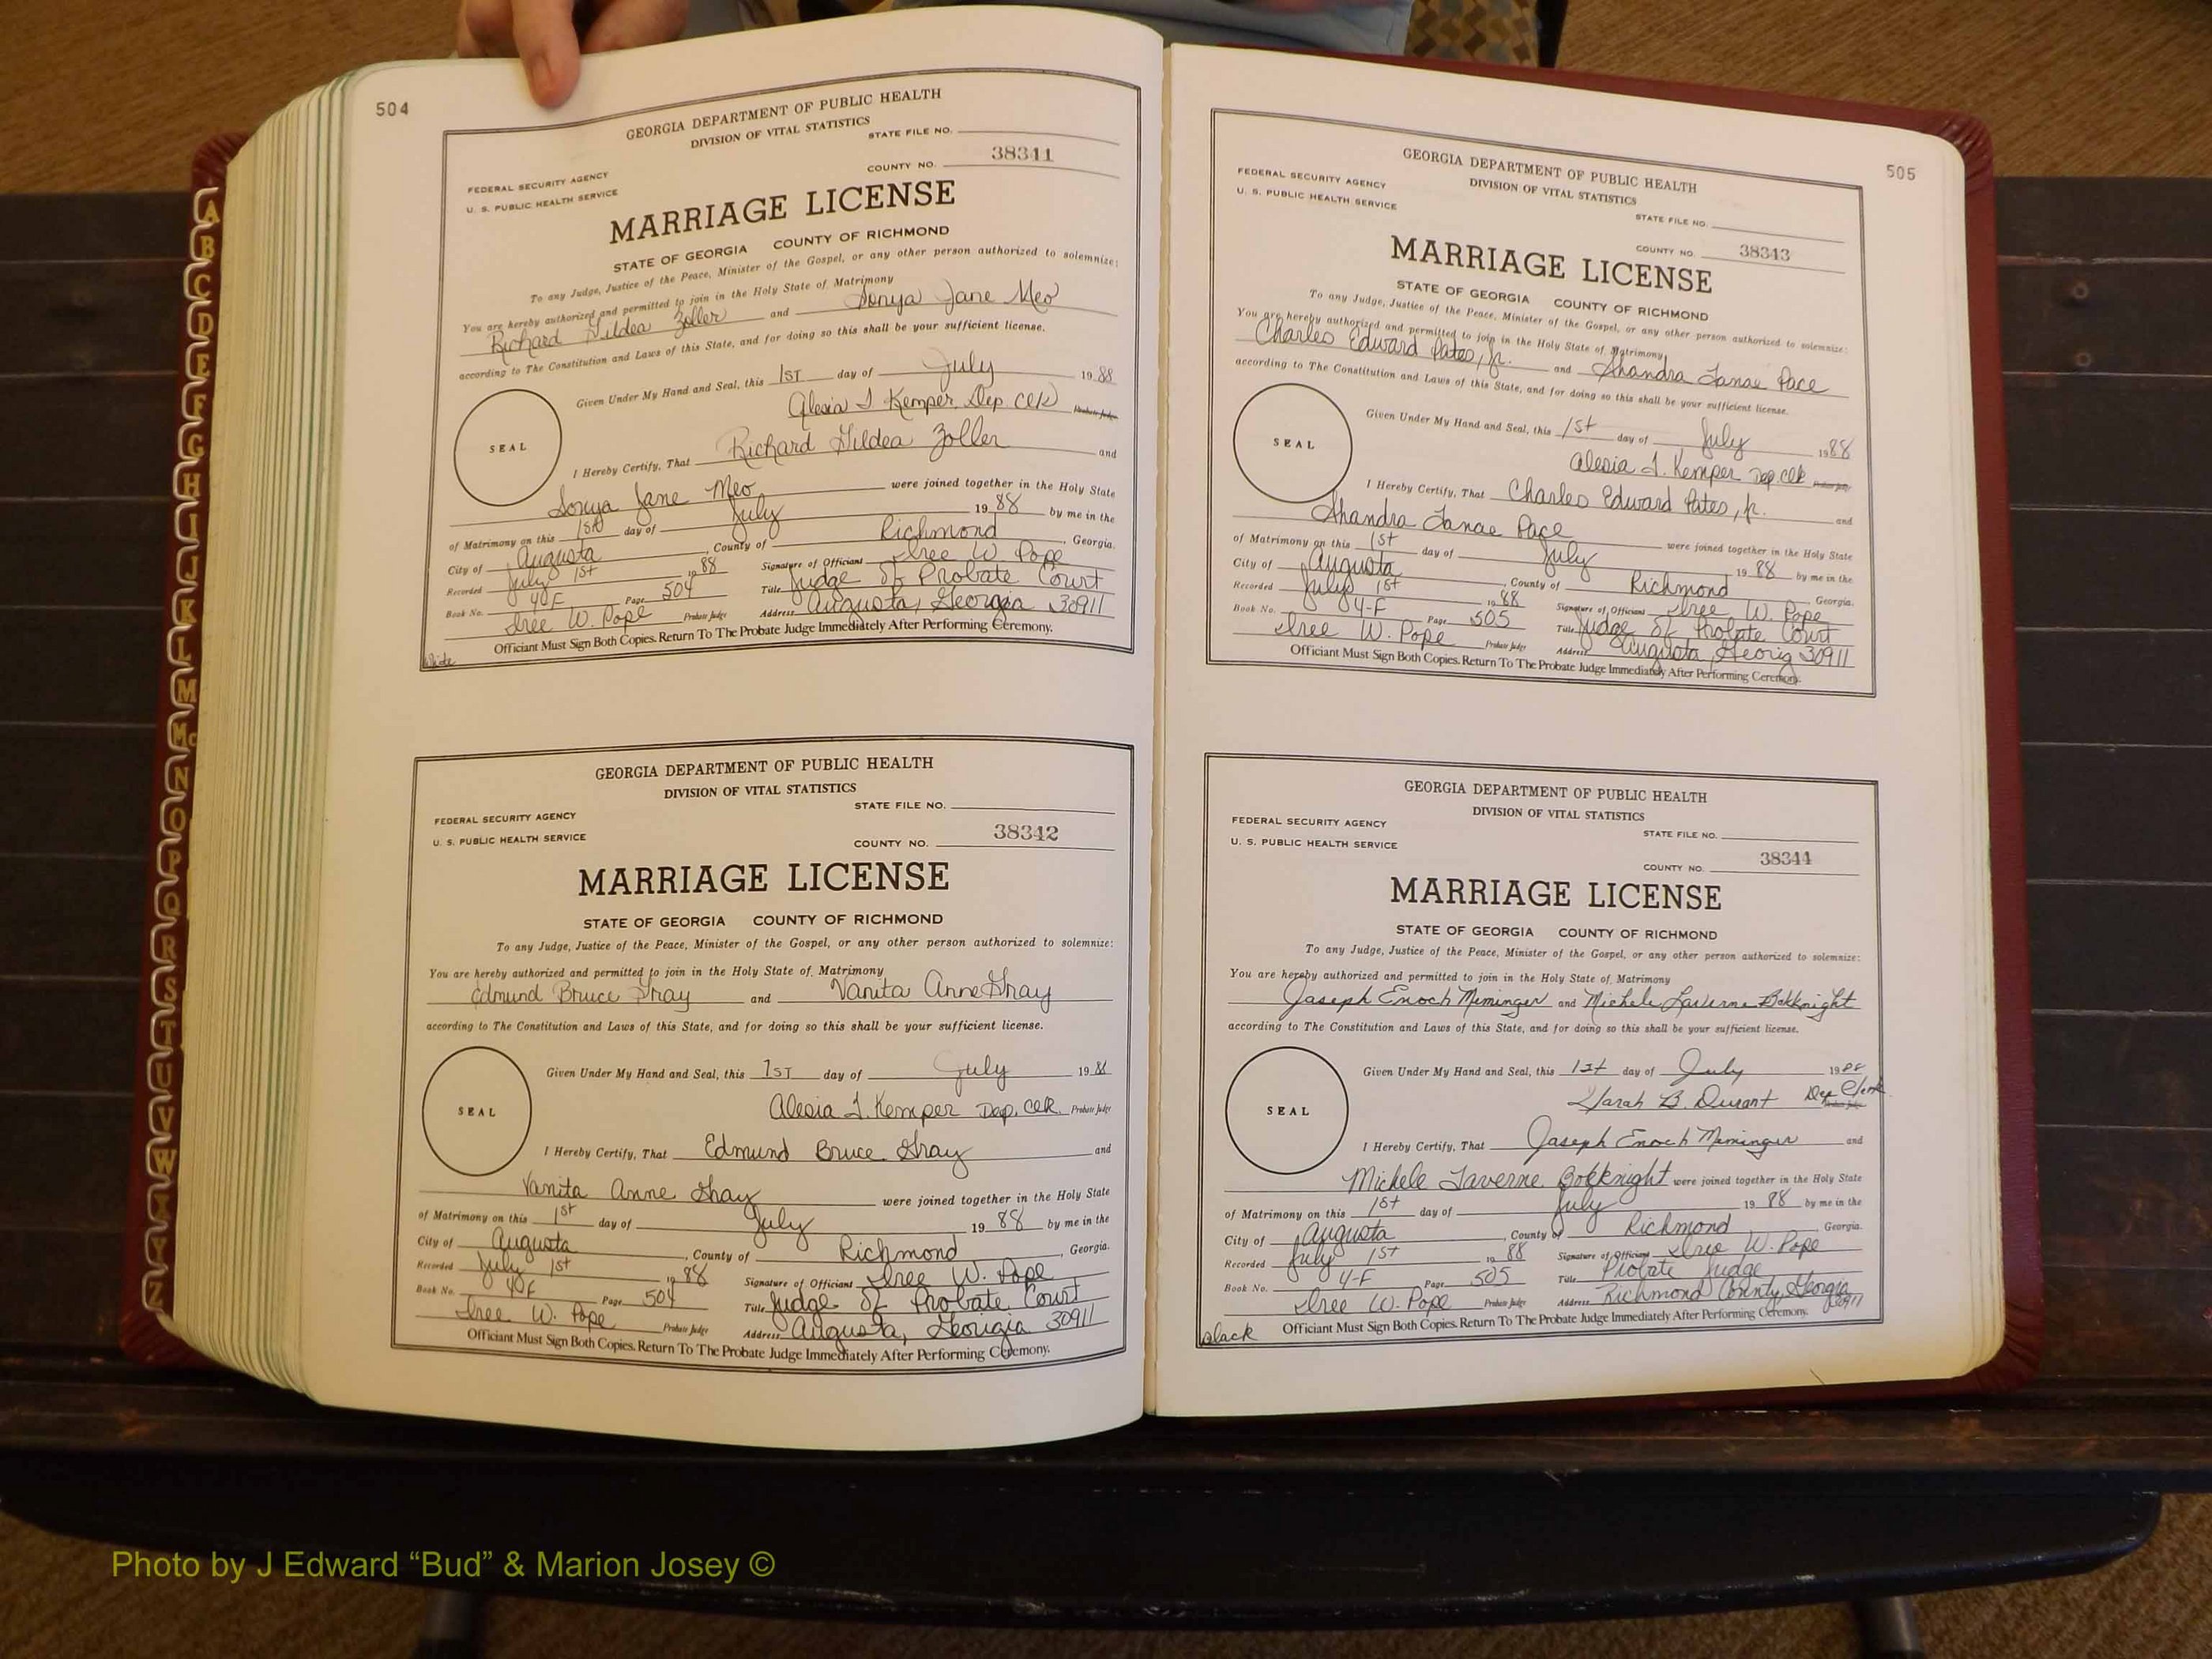 504
GEORGIA DEPARTMENT OF PUBLIC HEALTH
DIVISION OF VITAL STATISTICS
STATE FILE NO.
38341
COUNTY NO.
FEDERAL SECURITY AGENCY
U. S. PUBLIC HEALTH SERVICE
MARRIAGE LICENSE
STATE OF GEORGIA COUNTY OF RICHMOND
To any Judge, Justice of the Peace, Minister of the Gospel, or any other person authorized to solemnize:
You are hereby authorized and permitted to join in the Holy State of Matrimony
Richard Gildea Zoller and Sonya Jane Meo
according to The Constitution and Laws of this State, and for doing so this shall be your sufficient license.
Given Under My Hand and Seal, this 1ST day of July 19 88
Alesia J. Kemper, Dep. Clk Probate Judge
SEAL
I Hereby Certify, That Richard Gildea Zoller and
Sonya Jane Meo were joined together in the Holy State
of Matrimony on this 1st day of July 19 88 by me in the
City of Augusta, County of Richmond, Georgia.
Recorded July 1st 19 88 Signature of Officiant Isree W. Pope
Book No. 40F Page 504 Title Judge of Probate Court
Isree W. Pope Probate Judge Address Augusta, Georgia 30911
Officiant Must Sign Both Copies. Return To The Probate Judge Immediately After Performing Ceremony.
GEORGIA DEPARTMENT OF PUBLIC HEALTH
DIVISION OF VITAL STATISTICS
STATE FILE NO.
FEDERAL SECURITY AGENCY
38342
U. S. PUBLIC HEALTH SERVICE
COUNTY NO.
MARRIAGE LICENSE
STATE OF GEORGIA COUNTY OF RICHMOND
To any Judge, Justice of the Peace, Minister of the Gospel, or any other person authorized to solemnize:
You are hereby authorized and permitted to join in the Holy State of Matrimony
Edmund Bruce Gray and Vanita Anne Gray
according to The Constitution and Laws of this State, and for doing so this shall be your sufficient license.
Given Under My Hand and Seal, this 1ST day of July 19 88
Alesia J. Kemper Dep. Clk. Probate Judge
SEAL
I Hereby Certify, That Edmund Bruce Gray and
Vanita Anne Gray were joined together in the Holy State
of Matrimony on this 1st day of July 19 88 by me in the
City of Augusta, County of Richmond, Georgia.
Recorded July 1st 19 88 Signature of Officiant Isree W. Pope
Book No. 40F Page 504 Title Judge of Probate Court
Isree W. Pope Probate Judge Address Augusta, Georgia 30911
Officiant Must Sign Both Copies. Return To The Probate Judge Immediately After Performing Ceremony.
505
GEORGIA DEPARTMENT OF PUBLIC HEALTH
DIVISION OF VITAL STATISTICS
FEDERAL SECURITY AGENCY
U. S. PUBLIC HEALTH SERVICE
STATE FILE NO.
COUNTY NO. 38343
MARRIAGE LICENSE
STATE OF GEORGIA COUNTY OF RICHMOND
To any Judge, Justice of the Peace, Minister of the Gospel, or any other person authorized to solemnize:
You are hereby authorized and permitted to join in the Holy State of Matrimony
Charles Edward Pates, Jr. and Shandra Janae Pace
according to The Constitution and Laws of this State, and for doing so this shall be your sufficient license.
Given Under My Hand and Seal, this 1st day of July 19 88
Alesia J. Kemper Dep. Clk Probate Judge
SEAL
I Hereby Certify, That Charles Edward Pates, Jr. and
Shandra Janae Pace were joined together in the Holy State
of Matrimony on this 1st day of July 19 88 by me in the
City of Augusta, County of Richmond Georgia.
Recorded July 1st 19 88 Signature of Officiant Isree W. Pope
Book No. 4-F Page 505 Title Judge of Probate Court
Isree W. Pope Probate Judge Address Augusta, Georig 30911
Officiant Must Sign Both Copies. Return To The Probate Judge Immediately After Performing Ceremony.
GEORGIA DEPARTMENT OF PUBLIC HEALTH
DIVISION OF VITAL STATISTICS
FEDERAL SECURITY AGENCY
STATE FILE NO.
U. S. PUBLIC HEALTH SERVICE
COUNTY NO. 38344
MARRIAGE LICENSE
STATE OF GEORGIA COUNTY OF RICHMOND
To any Judge, Justice of the Peace, Minister of the Gospel, or any other person authorized to solemnize:
You are hereby authorized and permitted to join in the Holy State of Matrimony
Joseph Enoch Meminger and Michele Laverne Bokknight
according to The Constitution and Laws of this State, and for doing so this shall be your sufficient license.
Given Under My Hand and Seal, this 1st day of July 19 88
Sarah B. Durant Dep Clerk
SEAL
I Hereby Certify, That Joseph Enoch Meminger and
Michele Laverne Bokknight were joined together in the Holy State
of Matrimony on this 1st day of July 19 88 by me in the
City of Augusta, County of Richmond, Georgia.
Recorded July 1st 19 88 Signature of Officiant Isree W. Pope
Book No. 4-F Page 505 Title Probate Judge
Isree W. Pope Probate Judge Address Richmond County, Georgia 30911
Officiant Must Sign Both Copies. Return To The Probate Judge Immediately After Performing Ceremony.
black
A
B
C
D
E
F
G
H
I
J
K
L
M
Mc
N
O
P
Q
R
S
T
U
V
W
X
Y
Z
Photo by J Edward “Bud” & Marion Josey ©